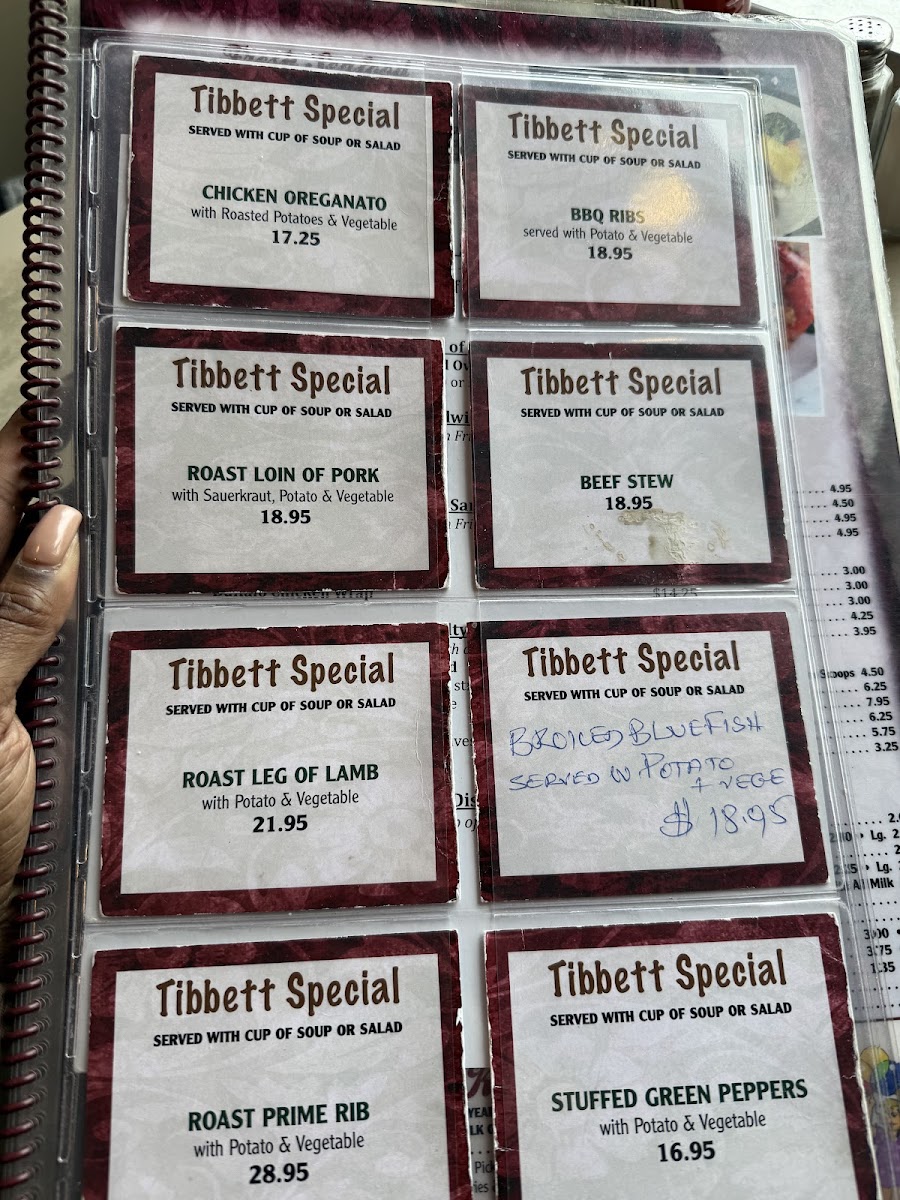 Tibbett Special
SERVED WITH CUP OF SOUP OR SALAD
CHICKEN OREGANATO
with Roasted Potatoes & Vegetable
17.25
Tibbett Special
SERVED WITH CUP OF SOUP OR SALAD
BBQ RIBS
served with Potato & Vegetable
18.95
Tibbett Special
SERVED WITH CUP OF SOUP OR SALAD
ROAST LOIN OF PORK
with Sauerkraut, Potato & Vegetable
18.95
Tibbett Special
SERVED WITH CUP OF SOUP OR SALAD
BEEF STEW
18.95
Tibbett Special
SERVED WITH CUP OF SOUP OR SALAD
ROAST LEG OF LAMB
with Potato & Vegetable
21.95
Tibbett Special
SERVED WITH CUP OF SOUP OR SALAD
BROILED BLUEFISH
SERVED W POTATO
+ VEGE
$ 18.95
Tibbett Special
SERVED WITH CUP OF SOUP OR SALAD
ROAST PRIME RIB
with Potato & Vegetable
28.95
Tibbett Special
SERVED WITH CUP OF SOUP OR SALAD
STUFFED GREEN PEPPERS
with Potato & Vegetable
16.95
of
or
$14.25
.... 4.95
.... 4.50
.... 4.95
.... 4.95
... 3.00
... 3.00
... 3.00
... 4.25
... 3.95
Scoops 4.50
.... 6.25
.... 7.95
.... 6.25
.... 5.75
.... 3.25
Lg.
Lg.
Milk
3.00
3.75
1.35